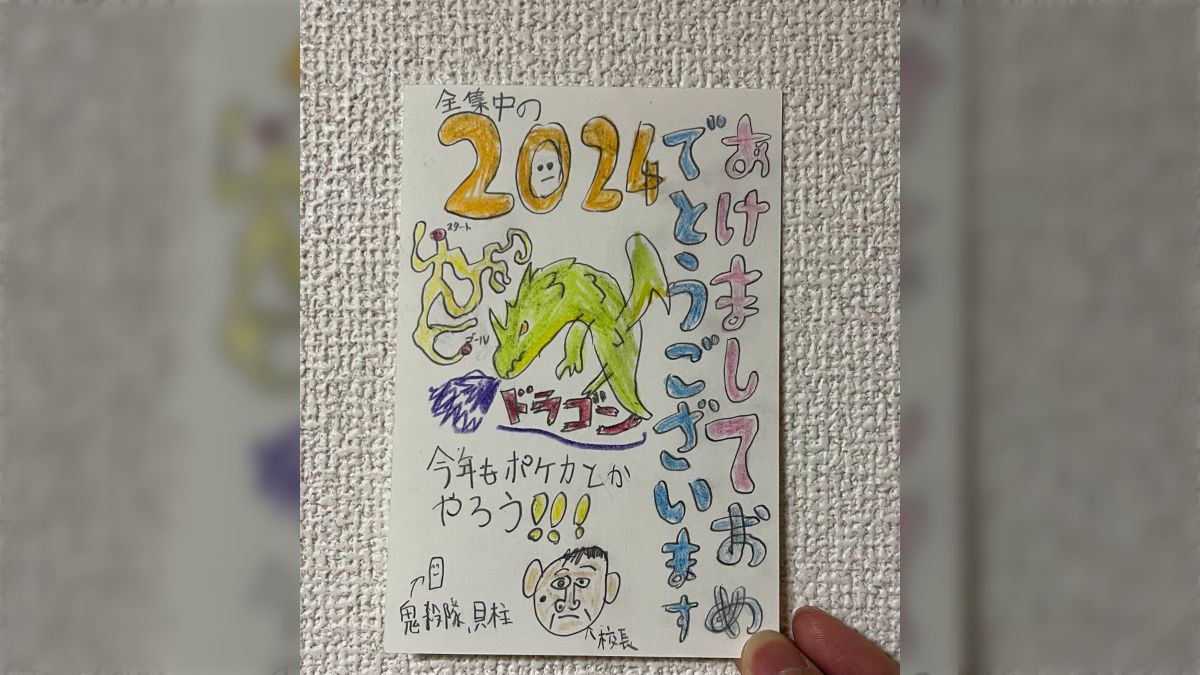 あけましておめ
でとうございます
全集中の
2024
スタート
ゴール
ドラゴン
今年もポケカとか
やろう!!!
鬼殺隊、貝柱
校長